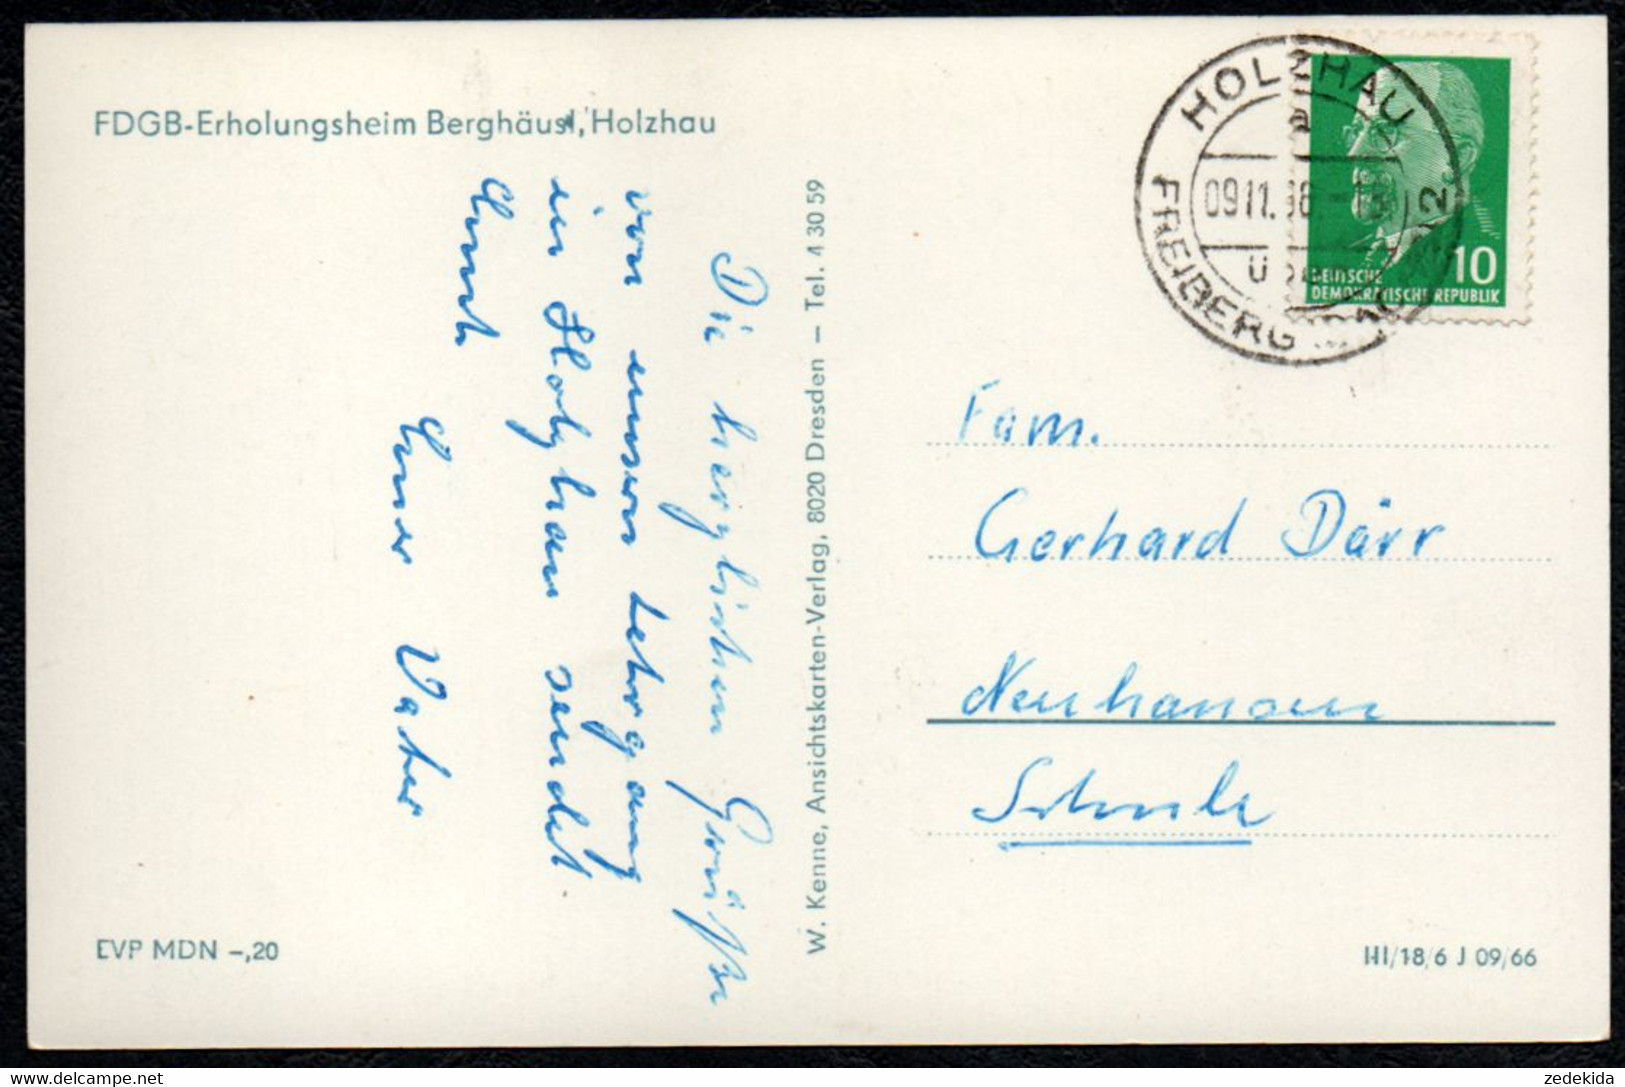 FDGB-Erholungsheim Berghäusl, Holzhau
Die herzlichsten Grüße
von unserm Lehrgang
in Holzhau sendet
Euch
Euer Vater
W. Kenne, Ansichtskarten-Verlag, 8020 Dresden – Tel. 4 30 59
HOLZHAU
a
0911.66.-18
FREIBERG
10
DEUTSCHE
DEMOKRATISCHE REPUBLIK
Fam.
Gerhard Därr
Neuhausen
Schule
EVP MDN –,20
III/18/6 J 09/66
zedekida